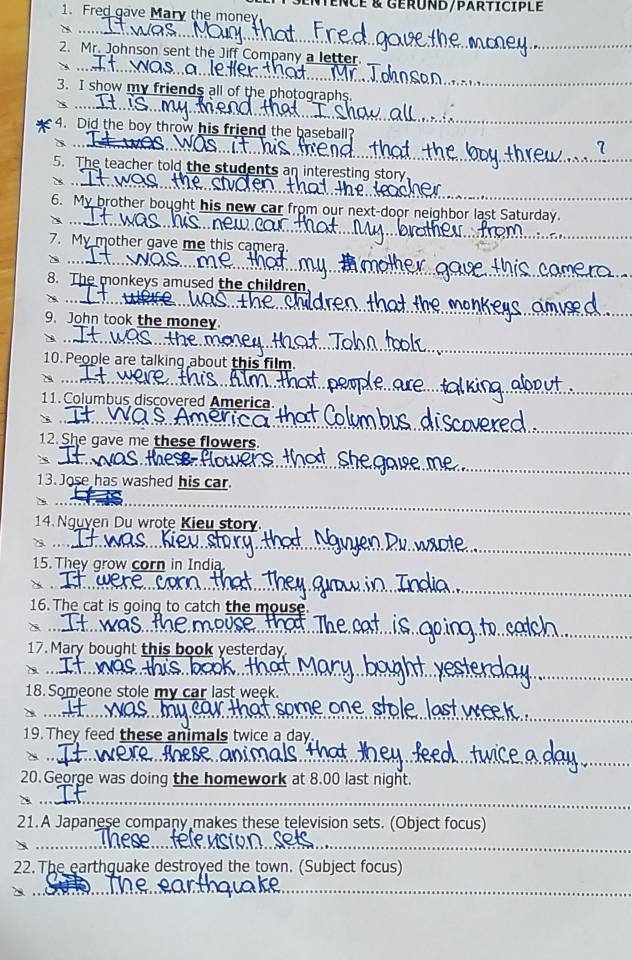 SENTENCE & GERUND/PARTICIPLE
1. Fred gave Mary the money.
It was Mary that Fred gave the money.
2. Mr. Johnson sent the Jiff Company a letter.
It was a letter that Mr. Johnson
3. I show my friends all of the photographs.
It is my friend that I show all
4. Did the boy throw his friend the baseball?
Was it his friend that the boy threw ?
5. The teacher told the students an interesting story.
It was the studen that the teacher
6. My brother bought his new car from our next-door neighbor last Saturday.
It was his new car that My brother from
7. My mother gave me this camera.
It was me that my mother gave this camera
8. The monkeys amused the children.
It was the children that the monkeys amused.
9. John took the money.
It was the money that John took
10. People are talking about this film.
It were this film that people are talking about.
11. Columbus discovered America.
It was America that Columbus discovered.
12. She gave me these flowers.
It was these flowers that she gave me.
13. Jose has washed his car.
It is
14. Nguyen Du wrote Kieu story.
It was Kieu story that Nguyen Du wrote
15. They grow corn in India.
It were corn that They grow in India.
16. The cat is going to catch the mouse.
It was the mouse that The cat is going to catch
17. Mary bought this book yesterday.
It was this book that Mary bought yesterday.
18. Someone stole my car last week.
It was my car that some one stole last week.
19. They feed these animals twice a day.
It were these animals that they feed twice a day.
20. George was doing the homework at 8.00 last night.
It
21. A Japanese company makes these television sets. (Object focus)
These television sets
22. The earthquake destroyed the town. (Subject focus)
The earthquake